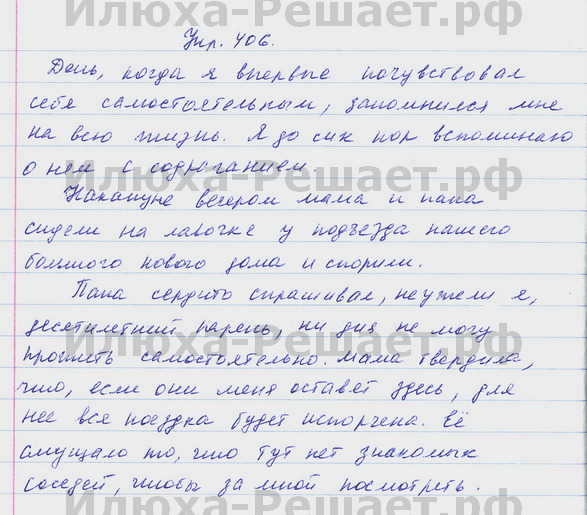 Илюха-Решает.рф
Упр. 406.
День, когда я впервые почувствовал
себя самостоятельным, запомнился мне
на всю жизнь. Я до сих пор вспоминаю
о нём с содроганием.
Илюха-Решает.рф
Накануне вечером мама и папа
сидели на лавочке у подъезда нашего
большого нового дома и спорили.
Папа сердито спрашивал, неужели я,
десятилетний парень, ни дня не могу
Илюха-Решает.рф
прожить самостоятельно. Мама твердила,
что, если они меня оставят здесь, для
неё вся поездка будет испорчена. Её
смущало то, что тут нет знакомых
соседей, чтобы за мной посмотреть.
Илюха-Решает.рф